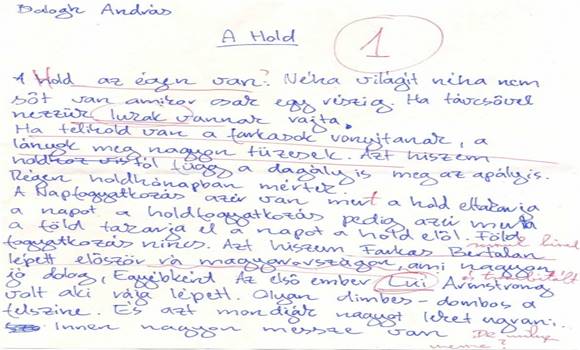 Balogh András
A Hold
1
A Hold az égen van? Néha világit néha nem
sőt van amikor csak egy részig. Ha távcsővel
nézzük lukak vannak rajta.
Ha telihold van a farkasok vonyitanak, a
lányok meg nagyon tüzesek. Azt hiszem
holdtól függ a dagály is meg az apályis.
Régen holdhónapban mértek.
A Napfogyatkozás azér van mert a hold eltakarja
a napot a holdfogyatkozás pedig azér mert a
a föld takarja el a napot a hold elől. Föld
fogyatkozás nincs. Azt hiszem Farkas Bertalan
lépett először rá magyarországon, ami nagyon
jó dolog, Egyébként Az első ember Lui Armstrong
volt aki rája lépett. Olyan dimbes-dombos a
felszíne. És azt mondják nagyot lehet ugrani..
Innen nagyon messze van De milyen